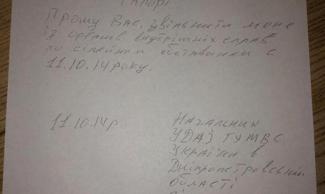 рапорт
Прошу Вас, звільнити мене
із органів внутрішніх справ
по сімейним обставинам с
11.10.14 року.
11.10.14р.
Начальник
УДАЇ ГУМВС
України в
Дніпропетровській
області